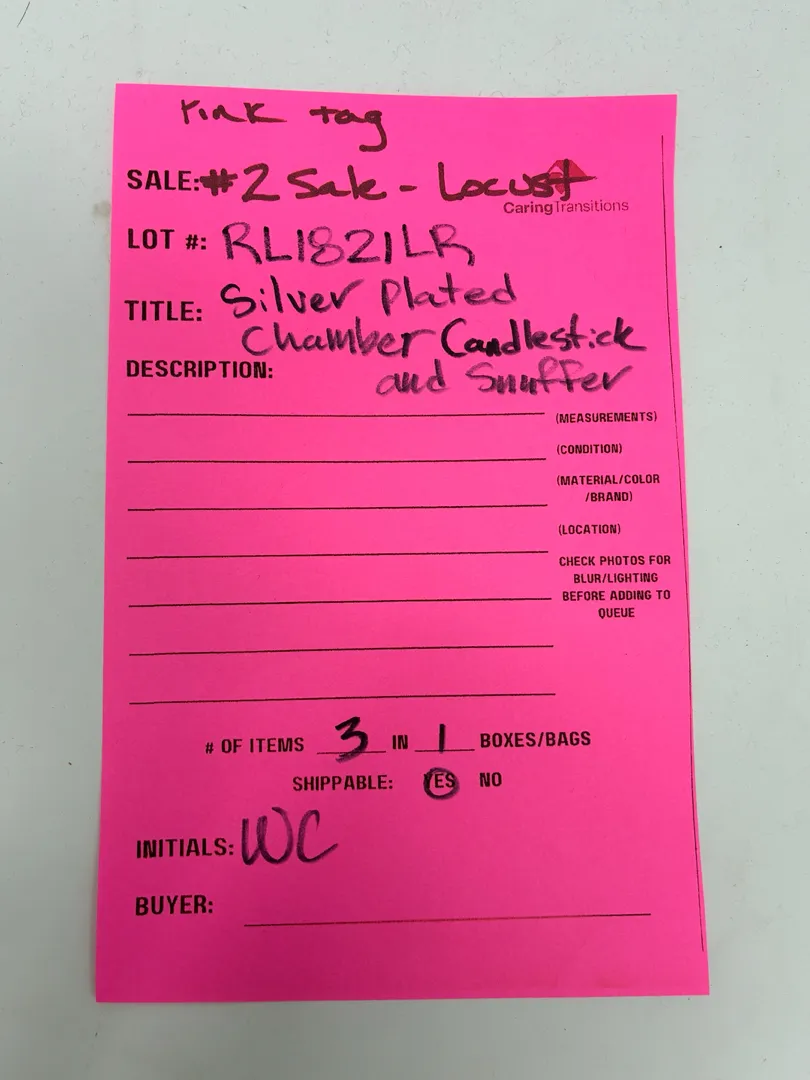 Pink tag
SALE: #2 Sale - Locust
CaringTransitions
LOT #: RL1821LR
TITLE: Silver Plated
Chamber Candlestick
and Snuffer
DESCRIPTION:
(MEASUREMENTS)
(CONDITION)
(MATERIAL/COLOR
/BRAND)
(LOCATION)
CHECK PHOTOS FOR
BLUR/LIGHTING
BEFORE ADDING TO
QUEUE
# OF ITEMS 3 IN 1 BOXES/BAGS
SHIPPABLE: YES NO
INITIALS: WC
BUYER: